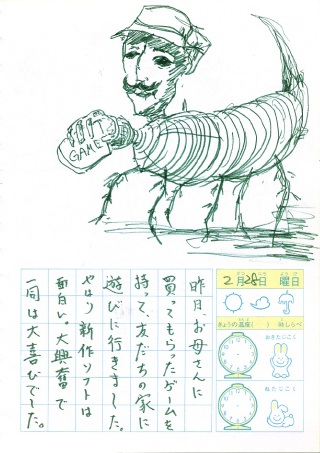 GAME
2月28日 曜日
きょうの温度( ) 時しらべ
おきたじこく
ねたじこく
昨日、お母さんに
買ってもらったゲームを
持って、友だちの家に
遊びに行きました。
やはり新作ソフトは
面白い。大興奮で
一同は大喜びでした。